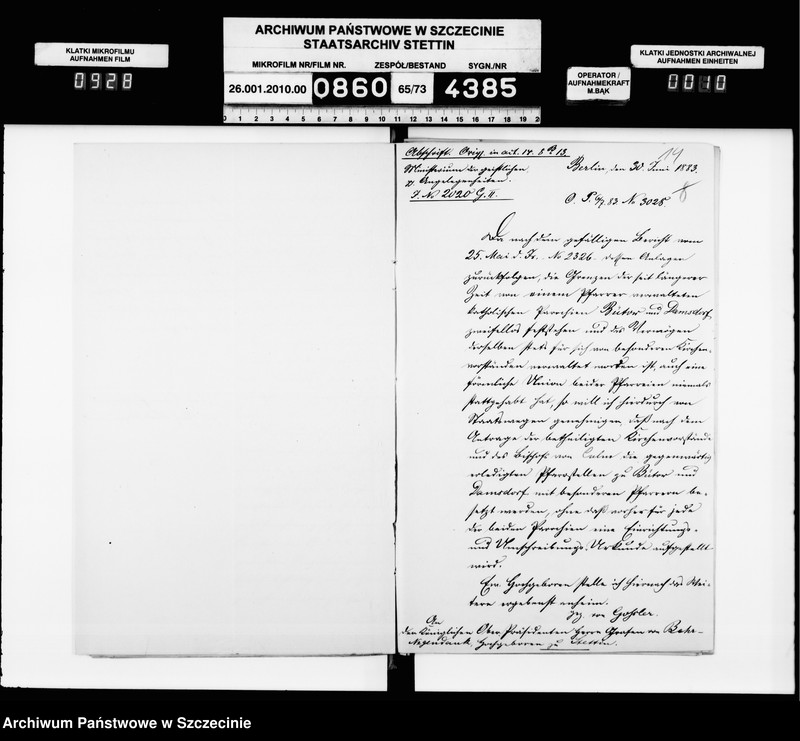 ARCHIWUM PAŃSTWOWE W SZCZECINIE
STAATSARCHIV STETTIN
KLATKI MIKROFILMU
AUFNAHMEN FILM
0928
MIKROFILM NR/FILM NR. ZESPÓŁ/BESTAND SYGN./NR
26.001.2010.00 0860 65/73 4385
OPERATOR /
AUFNAHMEKRAFT
M.BĄK
KLATKI JEDNOSTKI ARCHIWALNEJ
AUFNAHMEN EINHEITEN
0010
0 1 2 3 4 5 6 7 8 9 10 11 12 13 14 15 16 17 18 19 20
Abschrift. Orig. in act.
14
Ministerium der geistlichen
p. Angelegenheiten.
J. No 2020 G. II.
Berlin, den 30. Juni 1883.
O. P. 83. No 3028.
8
Da nach dem gefälligen Bericht vom
25. Mai d. Js. No 2326. dessen Anlagen
zurückfolgen, die Grenzen der seit längerer
Zeit von einem Pfarrer verwalteten
katholischen Parochien Bütow und Damsdorf
zweifellos feststehen und das Vermögen
derselben stets für sich von besonderen Kirchen-
vorständen verwaltet worden ist, auch eine
förmliche Union beider Pfarreien niemals
stattgehabt hat, so will ich hierdurch von
Staatswegen genehmigen, daß nach dem
Antrage der betheiligten Kirchenvorstände
und des Bischofs von Culm die gegenwärtig
erledigten Pfarrstellen zu Bütow und
Damsdorf mit besonderen Pfarrern be-
setzt werden, ohne daß vorher für jede
der beiden Parochien eine Einrichtungs-
und Umschreibungs-Urkunde aufgestellt
wird.
Ew. Hochgeboren stelle ich hiernach das Wei-
tere ergebenst anheim.
gez. von Goßler.
An
den Königlichen Ober-Präsidenten Herrn Grafen von Behr-
Negendank, Hochgeboren zu Stettin.
Archiwum Państwowe w Szczecinie